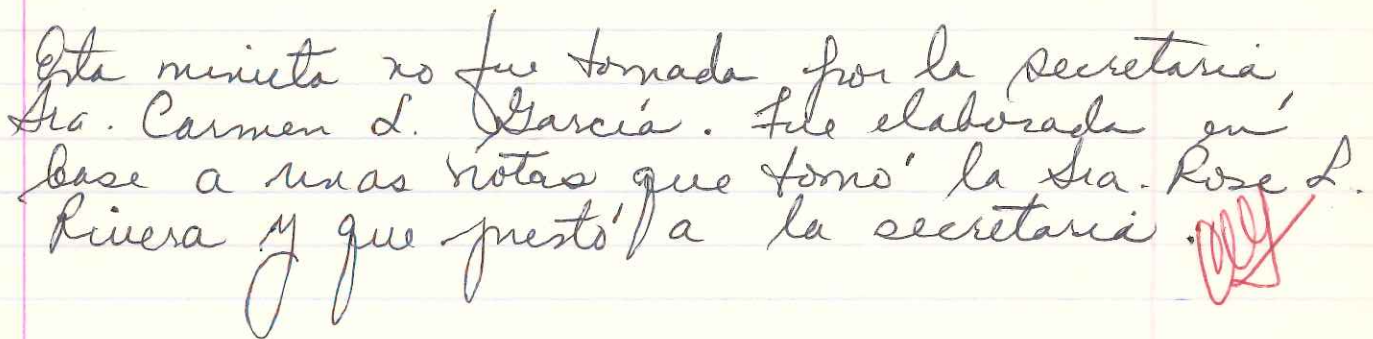 Esta minuta no fue tomada por la secretaria
Sra. Carmen L. García. Fue elaborada en
base a unas notas que tomó la Sra. Rose L.
Rivera y que prestó a la secretaria.